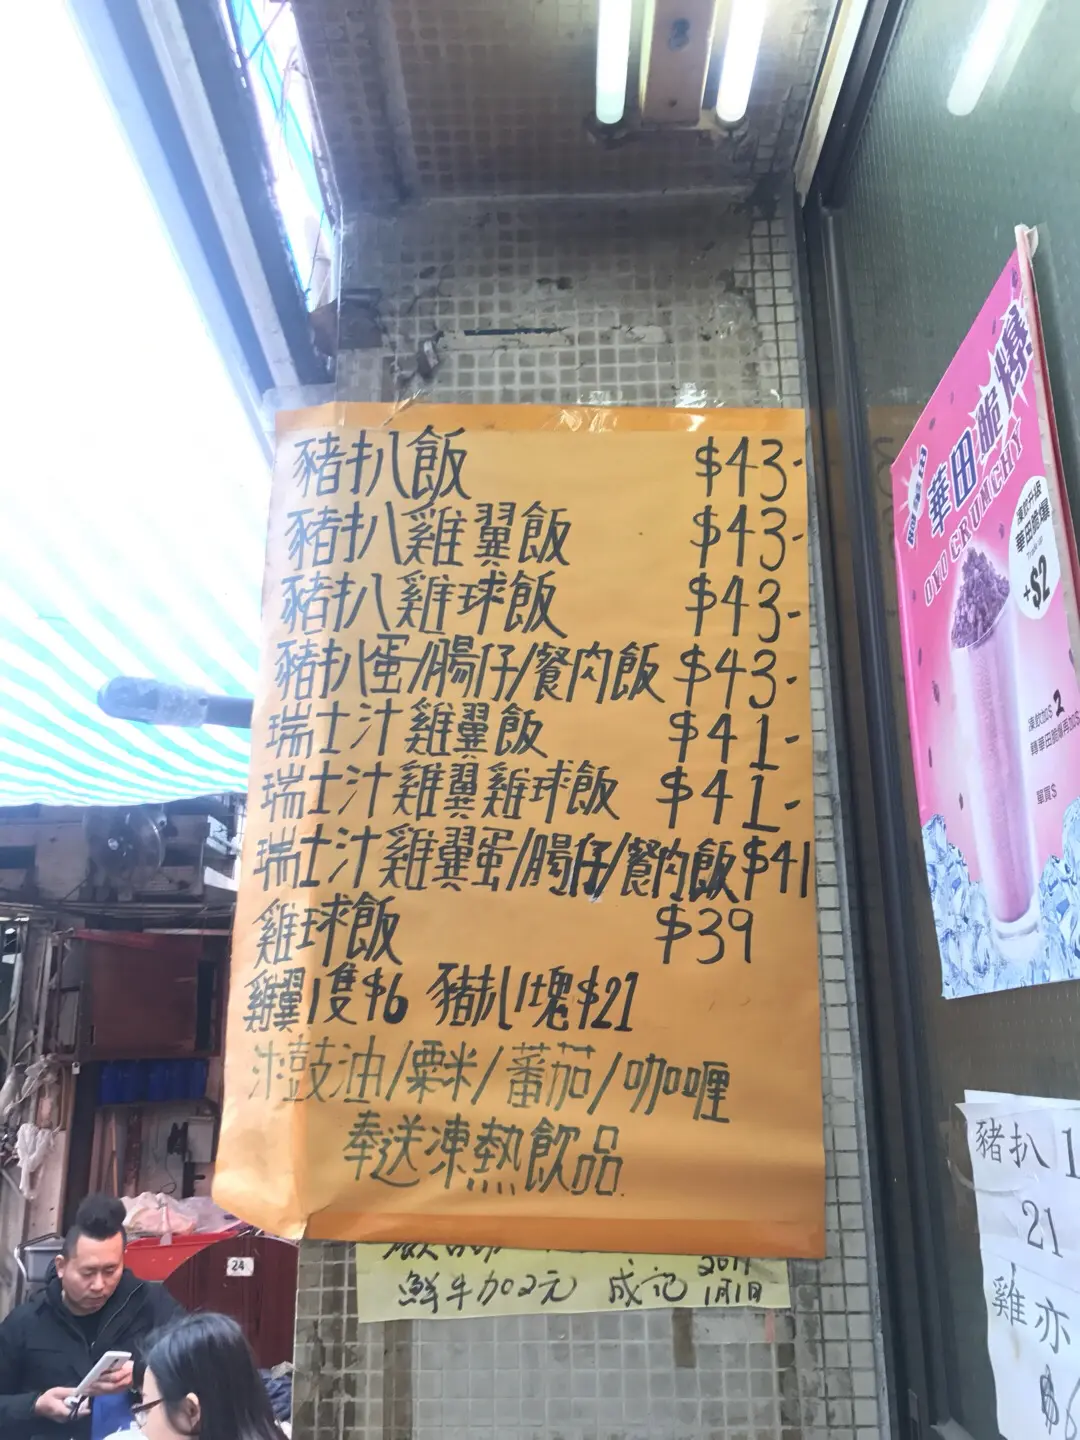 豬扒飯 $43-
豬扒雞翼飯 $43-
豬扒雞球飯 $43-
豬扒蛋/腸仔/餐肉飯 $43-
瑞士汁雞翼飯 $41-
瑞士汁雞翼雞球飯 $41-
瑞士汁雞翼蛋/腸仔/餐肉飯 $41
雞球飯 $39
雞翼1隻$6 豬扒1塊$21
汁鼓油/粟米/蕃茄/咖喱
奉送凍熱飲品
鮮牛加2元 成記 1月1日
華田脆爆
OVO CRUMCHY
凍飲升級
華田脆爆
+$2
凍飲加$2
轉華田脆爆再加$
單買$
豬扒1
21
雞亦
$6
24